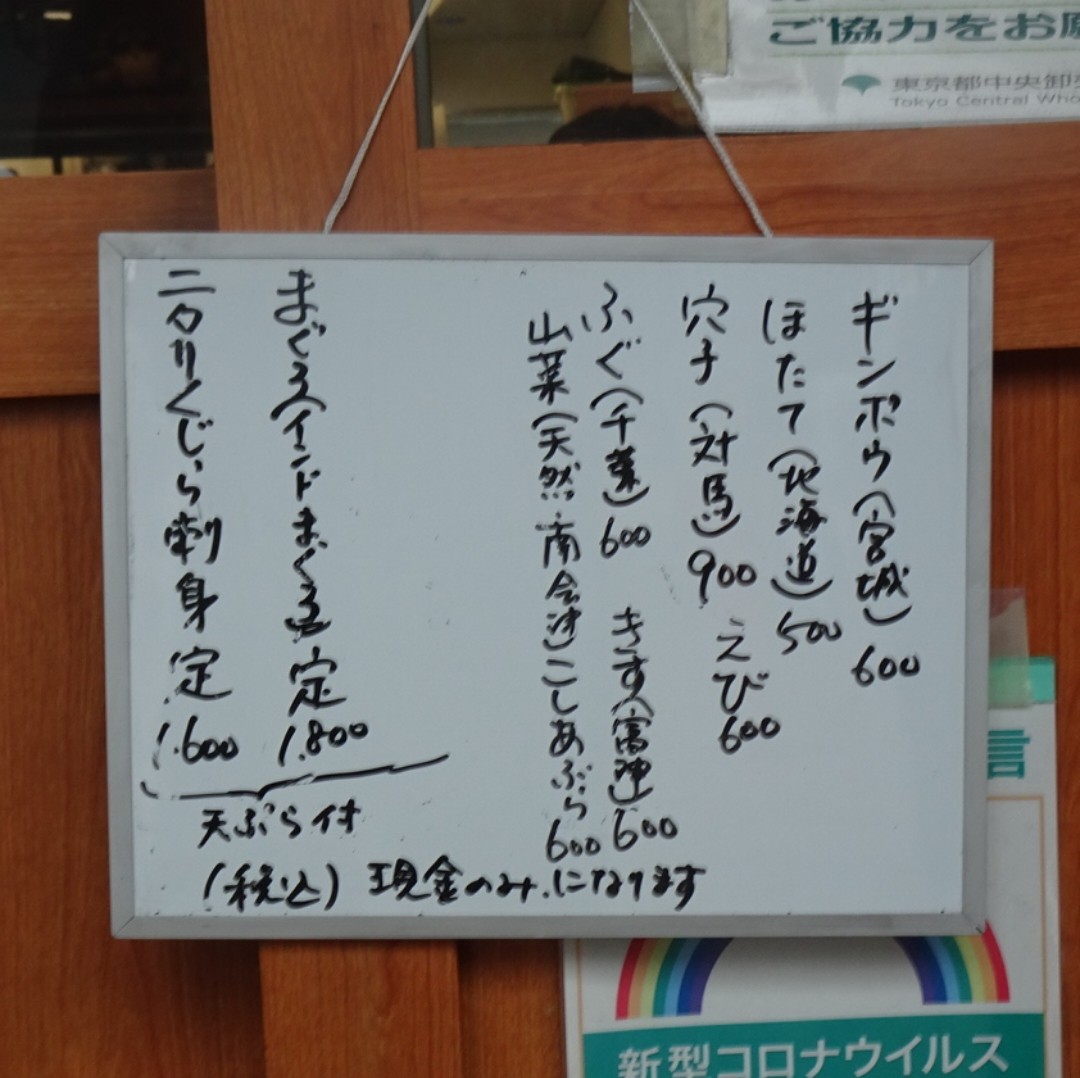 ご協力をお願
東京都中央卸売
Tokyo Central Who
ギンポウ(宮城) 600
ほたて(北海道) 500
穴子(対馬) 900 えび 600
ふぐ(千葉) 600 きす(富津) 600
山菜(天然・南会津)こしあぶら 600
まぐろ(インドまぐろ)定 1.800
ニタリくじら刺身定 1.600
天ぷら付
(税込) 現金のみ.になります
信
新型コロナウイルス